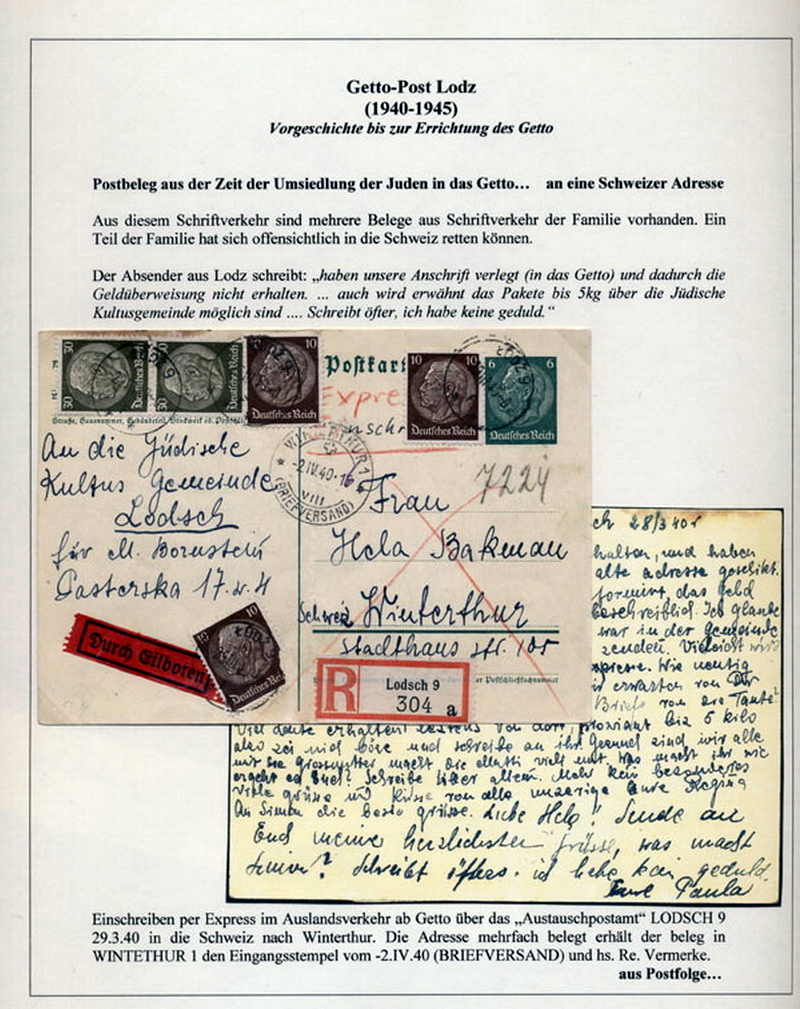 Getto-Post Lodz
(1940-1945)
Vorgeschichte bis zur Errichtung des Getto
Postbeleg aus der Zeit der Umsiedlung der Juden in das Getto… an eine Schweizer Adresse
Aus diesem Schriftverkehr sind mehrere Belege aus Schriftverkehr der Familie vorhanden. Ein
Teil der Familie hat sich offensichtlich in die Schweiz retten können.
Der Absender aus Lodz schreibt: „haben unsere Anschrift verlegt (in das Getto) und dadurch die
Geldüberweisung nicht erhalten. ... auch wird erwähnt das Pakete bis 5kg über die Jüdische
Kultusgemeinde möglich sind .... Schreibt öfter, ich habe keine geduld."
30 Deutsches Reich
30 Deutsches Reich
10 Deutsches Reich
Postkart
10 10 Deutsches Reich
6 6 Deutsches Reich
Expre
nschr
Straße, Hausnummer, Gebäudeteil, Stockwerk od. Postschließ
WINTERTHUR 1
-2.IV.40-16
VIII
(BRIEFVERSAND)
An die Jüdische
Kultus Gemeinde
Lodsch
für M. Bornstein
Pasterska 17. w. 4
7224
Frau
Hela Bakman
Schweiz Winterthur
Stadthaus str. 105
er Postschließfachnummer
Durch Eilboten
10 10 Deutsches Rei
R
Lodsch 9
304 a
ch 28/3 40r
halten, und haben
alte adresse geschikt.
das Geld
beschreiblich. Ich glaube
war in der Gemeinde
senden. Vieleicht wird
Wie neutig
wir erwarten von Dir
Briefe von die Tante
Viel Leute erhalten von dort, proviant bis 5 kilo
also sei nid böse und schreibe an ihr. Gesund sind wir alle
Was macht ihr wie
ergeht es Euch? Schreibe über allem. Mehr kein besonderes
Viele grüsse und küsse von alle unserige Eure Regina
An Simon die beste grüsse. Liebe Hela! Sende an
Euch meine herzlichsten grüsse, was macht
Simon? Schreibt öfters. ich habe kein geduld.
Eure Paula
Einschreiben per Express im Auslandsverkehr ab Getto über das „Austauschpostamt" LODSCH 9
29.3.40 in die Schweiz nach Winterthur. Die Adresse mehrfach belegt erhält der beleg in
WINTETHUR 1 den Eingangsstempel vom -2.IV.40 (BRIEFVERSAND) und hs. Re. Vermerke.
aus Postfolge…